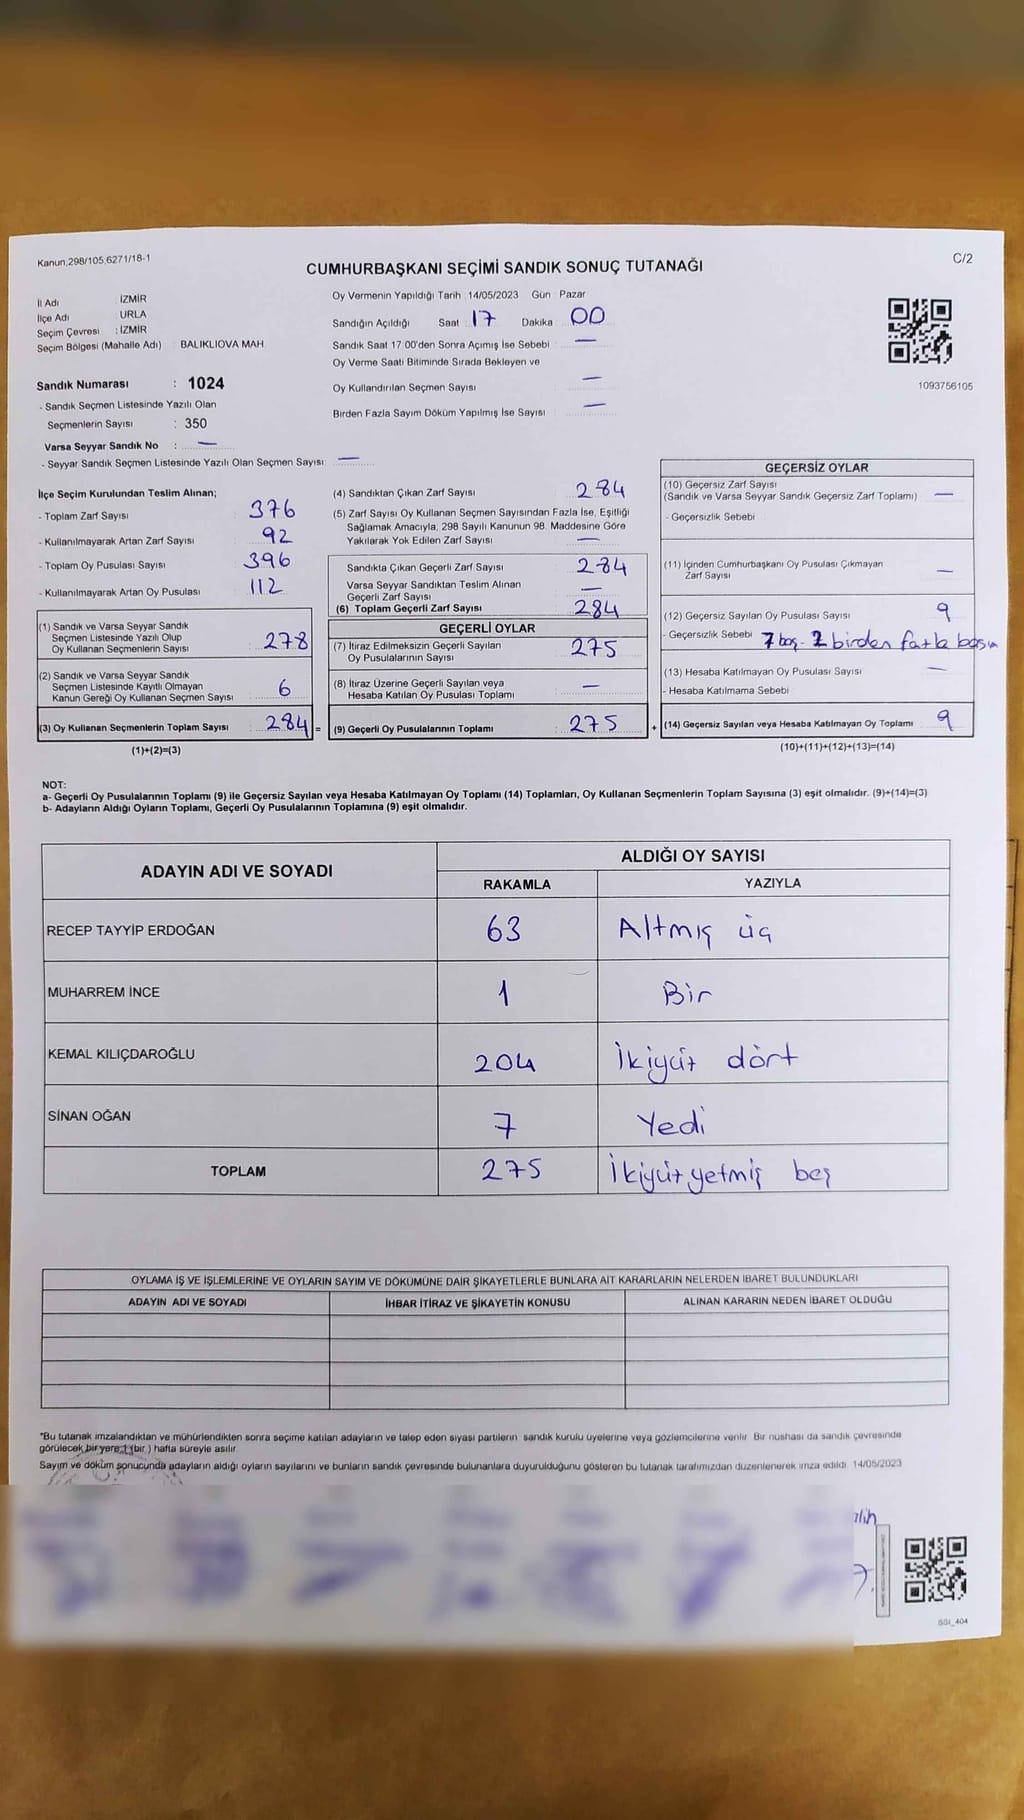 Kanun;298/105,6271/18-1
C/2
CUMHURBAŞKANI SEÇİMİ SANDIK SONUÇ TUTANAĞI
İl Adı İZMİR
İlçe Adı URLA
Seçim Çevresi : İZMİR
Seçim Bölgesi (Mahalle Adı) : BALIKLIOVA MAH.
Sandık Numarası : 1024
- Sandık Seçmen Listesinde Yazılı Olan
Seçmenlerin Sayısı : 350
Varsa Seyyar Sandık No : —
- Seyyar Sandık Seçmen Listesinde Yazılı Olan Seçmen Sayısı: —
Oy Vermenin Yapıldığı Tarih :14/05/2023 Gün : Pazar
Sandığın Açıldığı Saat : 17 Dakika : 00
Sandık Saat 17:00'den Sonra Açımış İse Sebebi : —
Oy Verme Saati Bitiminde Sırada Bekleyen ve
Oy Kullandırılan Seçmen Sayısı : —
Birden Fazla Sayım Döküm Yapılmış İse Sayısı : —
1093756105
İlçe Seçim Kurulundan Teslim Alınan;
- Toplam Zarf Sayısı : 376
- Kullanılmayarak Artan Zarf Sayısı : 92
- Toplam Oy Pusulası Sayısı : 396
- Kullanılmayarak Artan Oy Pusulası : 112
(1) Sandık ve Varsa Seyyar Sandık
Seçmen Listesinde Yazılı Olup
Oy Kullanan Seçmenlerin Sayısı : 278
(2) Sandık ve Varsa Seyyar Sandık
Seçmen Listesinde Kayıtlı Olmayan
Kanun Gereği Oy Kullanan Seçmen Sayısı : 6
(3) Oy Kullanan Seçmenlerin Toplam Sayısı : 284 =
(1)+(2)=(3)
(4) Sandıktan Çıkan Zarf Sayısı : 284
(5) Zarf Sayısı Oy Kullanan Seçmen Sayısından Fazla İse, Eşitliği
Sağlamak Amacıyla, 298 Sayılı Kanunun 98. Maddesine Göre
Yakılarak Yok Edilen Zarf Sayısı : —
Sandıkta Çıkan Geçerli Zarf Sayısı : 284
Varsa Seyyar Sandıktan Teslim Alınan
Geçerli Zarf Sayısı : —
(6) Toplam Geçerli Zarf Sayısı : 284
GEÇERLİ OYLAR
(7) İtiraz Edilmeksizin Geçerli Sayılan
Oy Pusulalarının Sayısı : 275
(8) İtiraz Üzerine Geçerli Sayılan veya
Hesaba Katılan Oy Pusulası Toplamı : —
(9) Geçerli Oy Pusulalarının Toplamı : 275 +
GEÇERSİZ OYLAR
(10) Geçersiz Zarf Sayısı
(Sandık ve Varsa Seyyar Sandık Geçersiz Zarf Toplamı) : —
- Geçersizlik Sebebi :
(11) İçinden Cumhurbaşkanı Oy Pusulası Çıkmayan
Zarf Sayısı : —
(12) Geçersiz Sayılan Oy Pusulası Sayısı : 9
- Geçersizlik Sebebi : 7 boş. 2 birden fazla basım
(13) Hesaba Katılmayan Oy Pusulası Sayısı : —
- Hesaba Katılmama Sebebi
(14) Geçersiz Sayılan veya Hesaba Katılmayan Oy Toplamı : 9
(10)+(11)+(12)+(13)=(14)
NOT:
a- Geçerli Oy Pusulalarının Toplamı (9) ile Geçersiz Sayılan veya Hesaba Katılmayan Oy Toplamı (14) Toplamları, Oy Kullanan Seçmenlerin Toplam Sayısına (3) eşit olmalıdır. (9)+(14)=(3)
b- Adayların Aldığı Oyların Toplamı, Geçerli Oy Pusulalarının Toplamına (9) eşit olmalıdır.
ADAYIN ADI VE SOYADI ALDIĞI OY SAYISI
RAKAMLA YAZIYLA
RECEP TAYYİP ERDOĞAN 63 Altmış üç
MUHARREM İNCE 1 Bir
KEMAL KILIÇDAROĞLU 204 İkiyüz dört
SİNAN OĞAN 7 Yedi
TOPLAM 275 İkiyüzyetmiş beş
OYLAMA İŞ VE İŞLEMLERİNE VE OYLARIN SAYIM VE DÖKÜMÜNE DAİR ŞİKAYETLERLE BUNLARA AİT KARARLARIN NELERDEN İBARET BULUNDUKLARI
ADAYIN ADI VE SOYADI İHBAR İTİRAZ VE ŞİKAYETİN KONUSU ALINAN KARARIN NEDEN İBARET OLDUĞU
*Bu tutanak imzalandıktan ve mühürlendikten sonra seçime katılan adayların ve talep eden siyasi partilerin sandık kurulu üyelerine veya gözlemcilerine verilir. Bir nüshası da sandık çevresinde
görülecek bir yere 1 (bir ) hafta süreyle asılır.
Sayım ve döküm sonucunda adayların aldığı oyların sayılarını ve bunların sandık çevresinde bulunanlara duyurulduğunu gösteren bu tutanak tarafımızdan düzenlenerek imza edildi. 14/05/2023